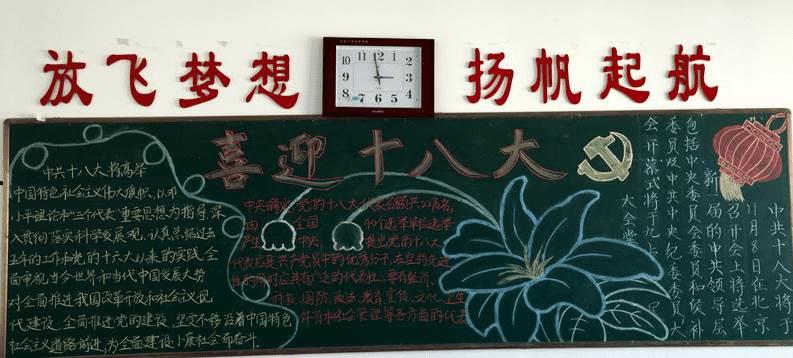 放飞梦想
扬帆起航
喜迎十八大
中共十八大将高举
中国特色社会主义伟大旗帜、以邓
小平理论和三个代表重要思想为指导,深
入贯彻落实科学发展观,认真总结过去
五年的工作和党的十六大以来的实践,全
面审视当今世界和当代中国发展大势
对全面推进我国改革开放和社会主义现
代建设、全面推进党的建设、坚定不移沿着中国特色
社会主义道路前进,为全面建设小康社会而奋斗.
党的十八大代表名额共2270名,
由 全国 40个选举单位选举
产生 中央 提出党的十八大
代表应是共产党员中的优秀分子,在坚持先进
性的同时应具有广泛的代表性、要有经济、
国防、政治、教育宣传、文化、卫生
体育和社会管理等各方面的代表
中共十八大将于
11月8日在北京
召开会上将选举
新一届的中共领导层
包括中央委员会委员和候补
委员及中共中央纪委委员大
会开幕式将于九上
大会堂